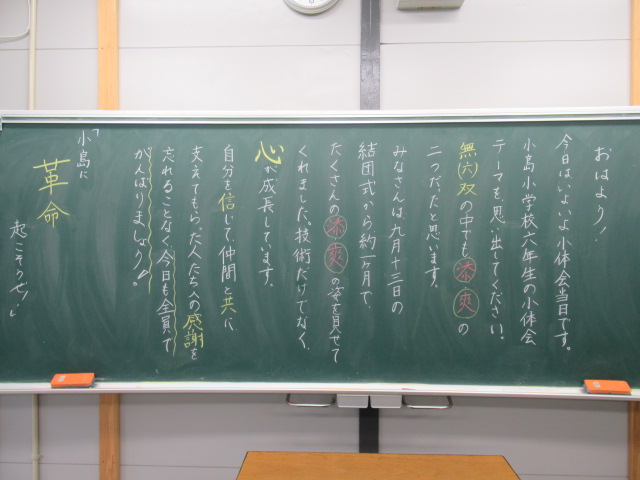 おはよう！
今日はいよいよ小体会当日です。
小島小学校六年生の小体会
テーマも思い出してください。
無(六)双の中でも添爽の
二つだったと思います。
みなさんは九月十三日の
結団式から約一ヶ月で、
たくさんの添爽の姿を見せて
くれました。技術だけでなく、
心が成長しています。
自分を信じて、仲間と共に、
支えてもらった人たちへの感謝を
忘れることなく、今日も全員で
がんばりましょう。
「小島に
革命
起こそうぜ！」